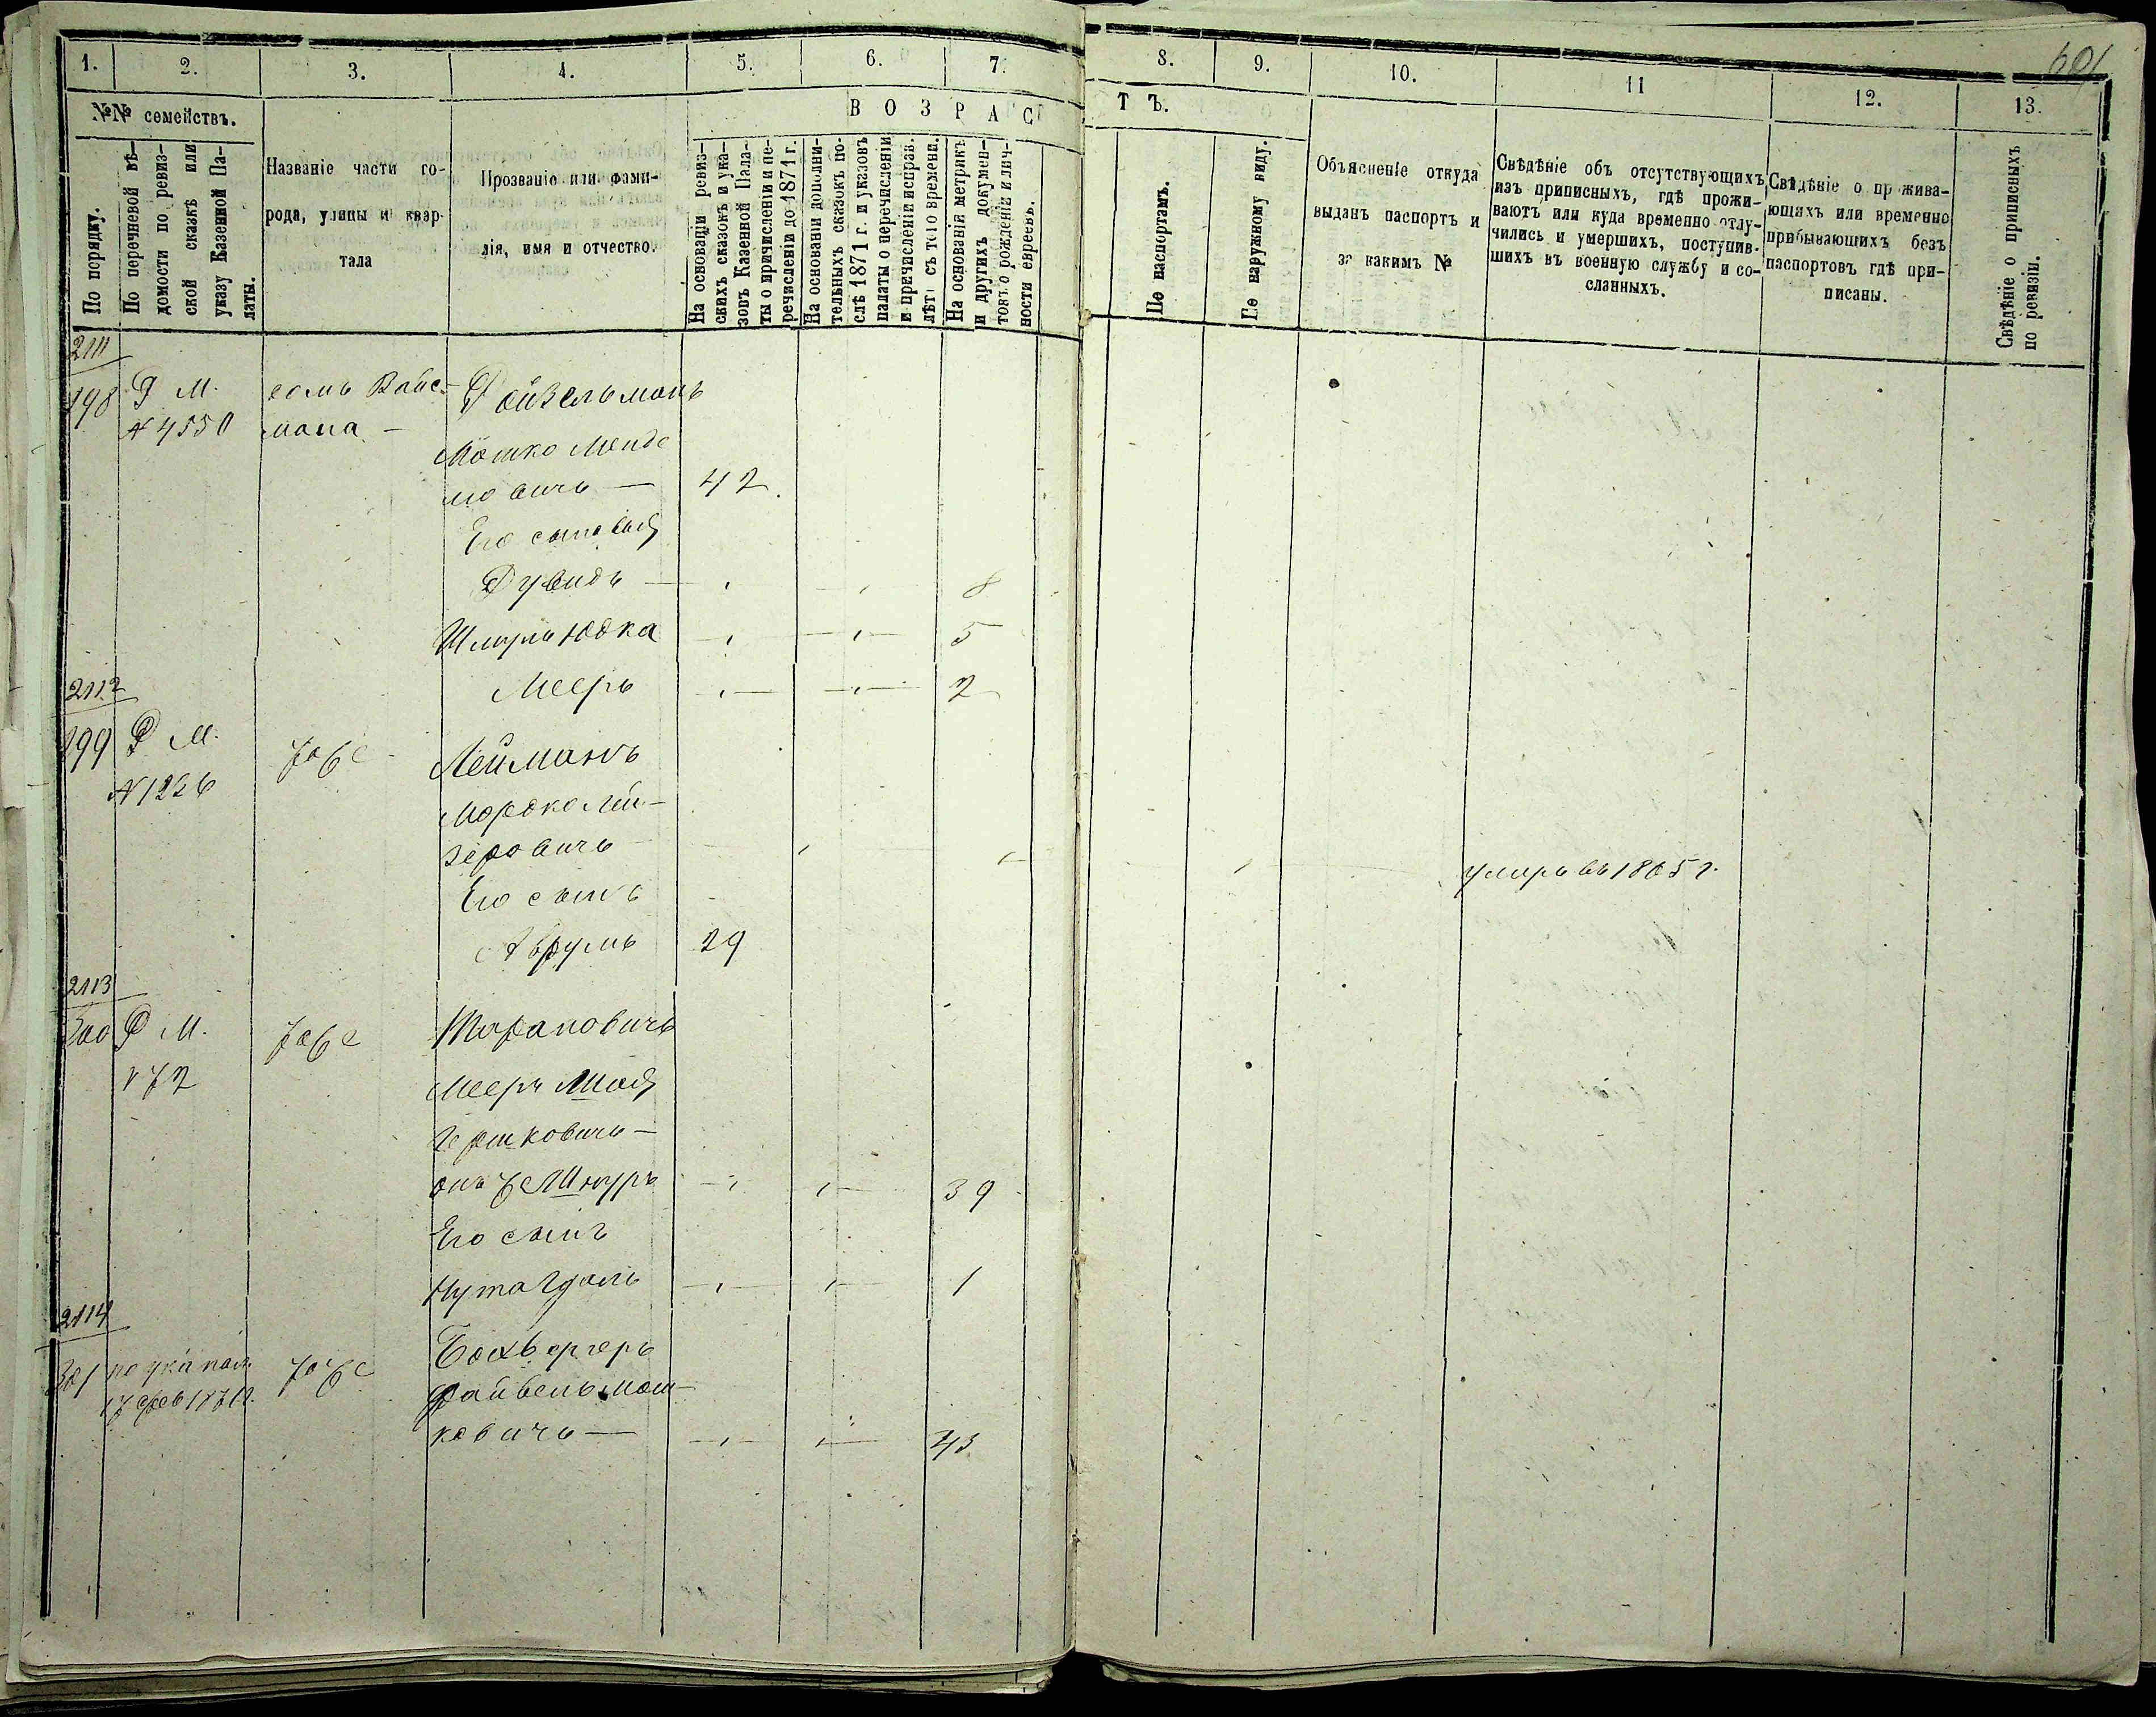 1. 2. 3. 4. 5. 6. 7. 8. 9. 10. 11 12. 13.
№№ семействъ.
По порядку.
По перечневой вѣ-
домости по ревиз-
ской сказкѣ или
указу Казенной Па-
латы.
Названіе части го-
рода, улицы и квар-
тала
Прозваніе или фами-
лія, имя и отчество.
ВОЗРАСТЪ.
На основаніи ревиз-
скихъ сказокъ и ука-
зовъ Казенной Пала-
ты о причисленіи и пе-
речисленіи до 1871 г.
На основаніи дополни-
тельныхъ сказокъ по-
слѣ 1871 г. и указовъ
палаты о перечисленіи
и причисленіи исправ.
лѣтъ съ того времени.
На основаніи метрикъ
и другихъ докумен-
товъ о рожденіи и лич-
ности евреевъ.
По паспортамъ.
По наружному виду.
Объясненіе откуда
выданъ паспортъ и
за какимъ №
Свѣдѣніе объ отсутствующихъ
изъ приписныхъ, гдѣ прожи-
ваютъ или куда временно отлу-
чились и умершихъ, поступив-
шихъ въ военную службу и со-
сланныхъ.
Свѣдѣніе о прожива-
ющихъ или временно
прибывающихъ безъ
паспортовъ гдѣ при-
писаны.
Свѣдѣніе о приписныхъ
по ревизіи.
2111
198 Р М. Вайс-
N 4550 мана —
Мошко Менде
левичъ — 42.
Его сыновья
Дувидъ — 8
Шмуль Юдка 5
Мееръ 2
2112
199 Р М. тоже Лейманъ
N 1226
Мордко Лей-
зеровичъ умеръ въ 1865 г.
Его сынъ
Аврумъ 29
2113
200 Р М. тоже Тарановичъ
72 Мееръ
Гершковичъ —
онъ же Шнуръ 39
Его сынъ
1
2114
201 по ука пал. тоже
17 фев 1871 г. Файвель Мош-
ковичъ — 43